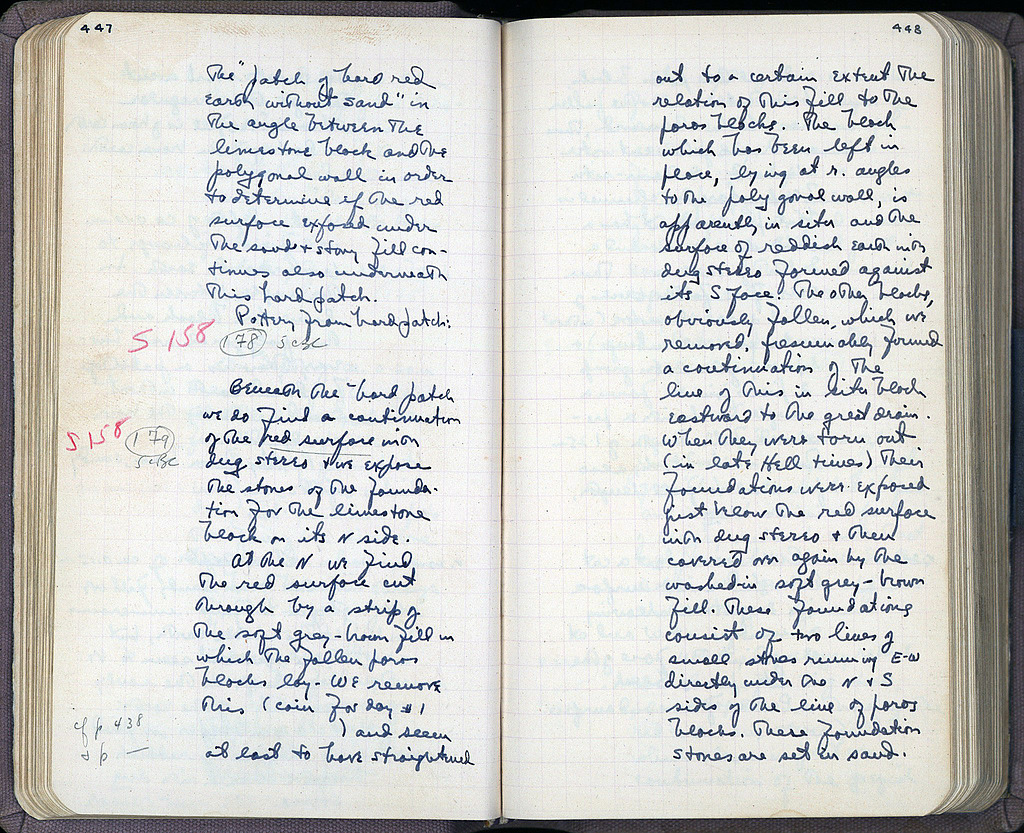 447
The "patch of hard red
earth without sand" in
the angle between the
limestone block and the
polygonal wall in order
to determine if the red
surface exposed under
the sand + stony fill con-
tinues also underneath
this hard patch.
Pottery from hard patch:
S 158 (178) 5cBC
Beneath the "hard patch
we do find a continuation
of the red surface in on
S 158 (179) dug stereo + we expose
5cBC the stones of the founda-
tion for the limestone
block on its N side.
At the N we find
the red surface cut
through by a strip of
the soft grey-brown fill in
which the fallen poros
blocks lay. We remove
this (coin for day #1
cf p 438 ) and seem
+ p — at last to have straightened
448
out to a certain extent the
relation of this fill to the
poros blocks. The block
which has been left in
place, lying at r. angles
to the polygonal wall, is
apparently in situ and the
surface of reddish earth in on
dug stereo formed against
its S face. The other blocks,
obviously fallen, which we
removed, presumably formed
a continuation of the
line of this in situ block
eastward to the great drain.
When they were torn out
(in late Hell times) their
foundations were exposed
just below the red surface
in on dug stereo + then
covered over again by the
washed-in soft grey-brown
fill. These foundations
consist of two lines of
small stones running E-W
directly under the N + S
sides of the line of poros
blocks. These foundation
stones are set in sand.